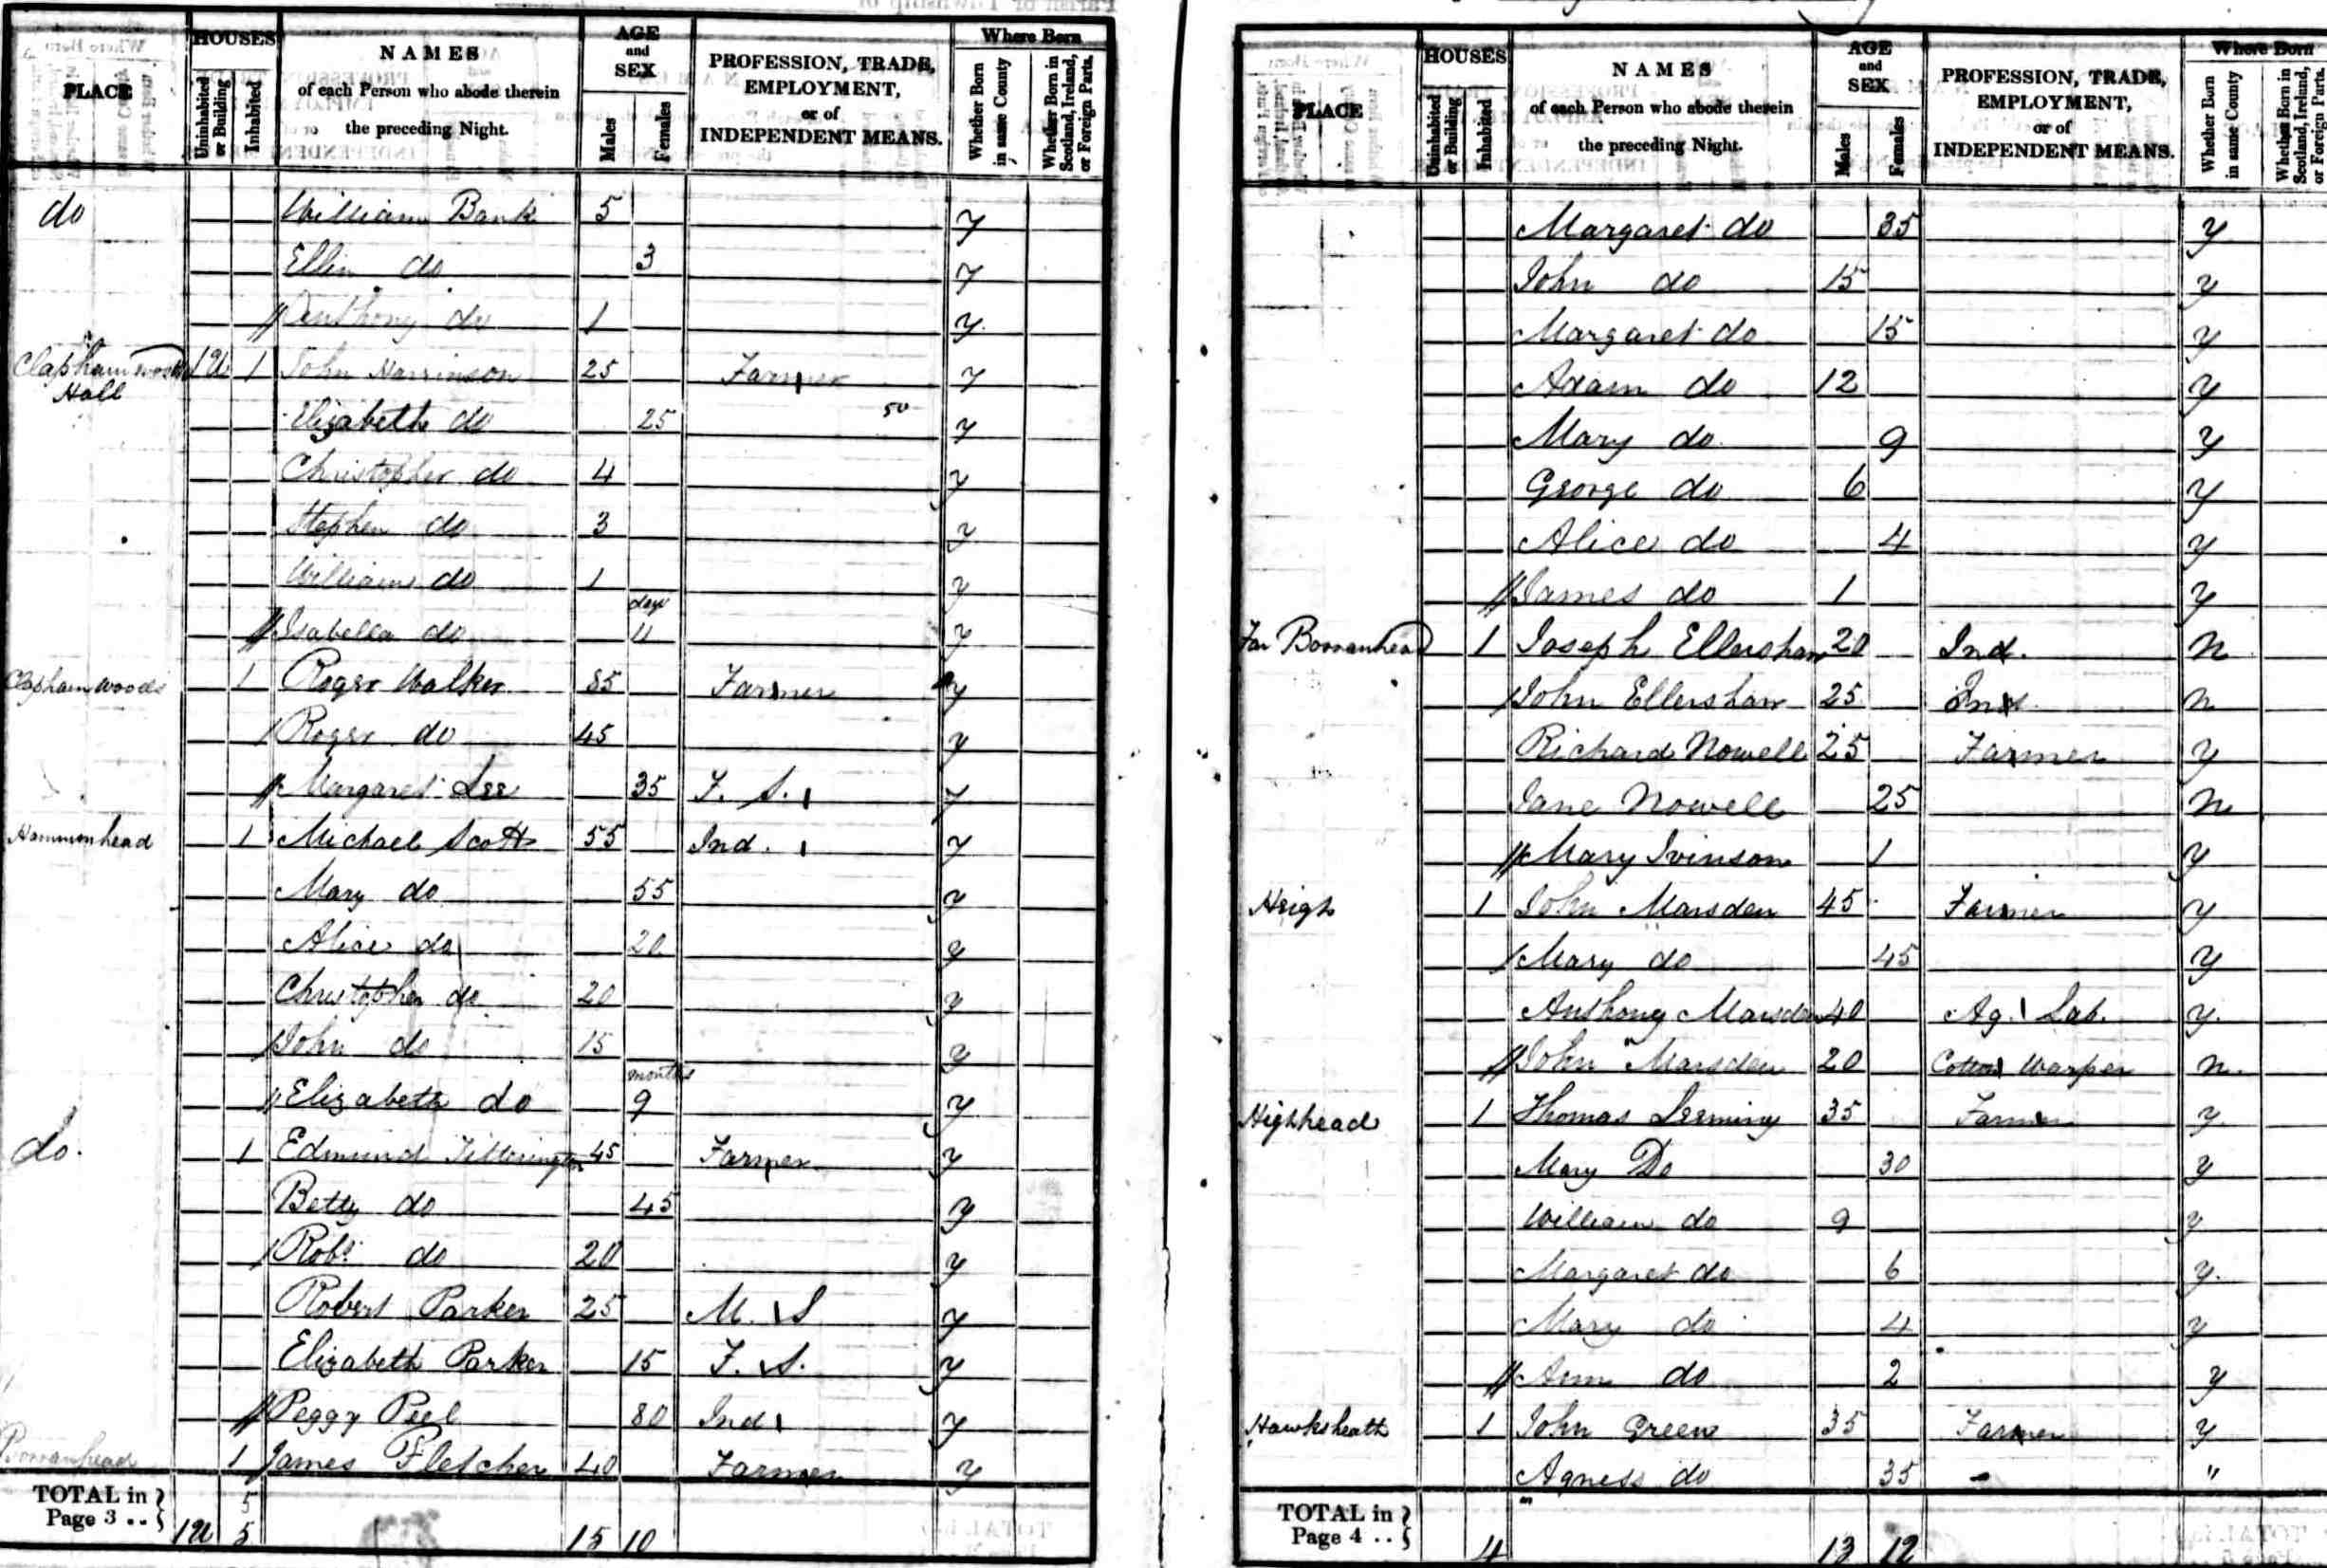 PLACE HOUSES Uninhabited or Building Inhabited NAMES of each Person who abode therein the preceding Night. AGE and SEX Males Females PROFESSION, TRADE, EMPLOYMENT, or of INDEPENDENT MEANS. Where Born Whether Born in same County Whether Born in Scotland, Ireland, or Foreign Parts.
do William Bank 5 y
Ellin do 3 y
Anthony do 1 y
Clapham Wood Hall 1U 1 John Harrinson 25 Farmer y
Elizabeth do 25 50 y
Christopher do 4 y
Stephen do 3 y
William do 1 y
Isabella do days 11 y
Clapham woods 1 Roger Walker 85 Farmer y
Roger do 45 y
Margaret Lee 35 F. S. y
Hammonhead 1 Michael Scott 55 Ind. y
Mary do 55 y
Alice do 20 y
Christopher do 20 y
John do 15 y
Elizabeth do months 9 y
do. 1 Edmund Titterington 45 Farmer y
Betty do 45 y
Robt do 20 y
Robert Parker 25 M. S y
Elizabeth Parker 15 F. S. y
Peggy Peel 80 Ind y
Borranhead 1 James Fletcher 40 Farmer y
TOTAL in Page 3 .. 1U 5 5 15 10
PLACE HOUSES Uninhabited or Building Inhabited NAMES of each Person who abode therein the preceding Night. AGE and SEX Males Females PROFESSION, TRADE, EMPLOYMENT, or of INDEPENDENT MEANS. Where Born Whether Born in same County Whether Born in Scotland, Ireland, or Foreign Parts.
Margaret do 35 y
John do 15 y
Margaret do 15 y
Adam do 12 y
Mary do 9 y
George do 6 y
Alice do 4 y
James do 1 y
Far Borranhead 1 Joseph Ellershaw 20 Ind. n
John Ellershaw 25 Ind n
Richard Nowell 25 Farmer y
Jane Nowell 25 n
Mary Ivinson 1 y
Heigh 1 John Marsden 45 Farmer y
Mary do 45 y
Anthony Marsden 40 Ag. Lab. y.
John Marsden 20 Cotton Warper n.
Highhead 1 Thomas Leeming 35 Farmer y
Mary Do 30 y
William do 9 y
Margaret do 6 y.
Mary do 4 y
Ann do 2 y
Hawksheath 1 John Green 35 Farmer y
Agness do 35 - "
TOTAL in Page 4 .. 4 13 12